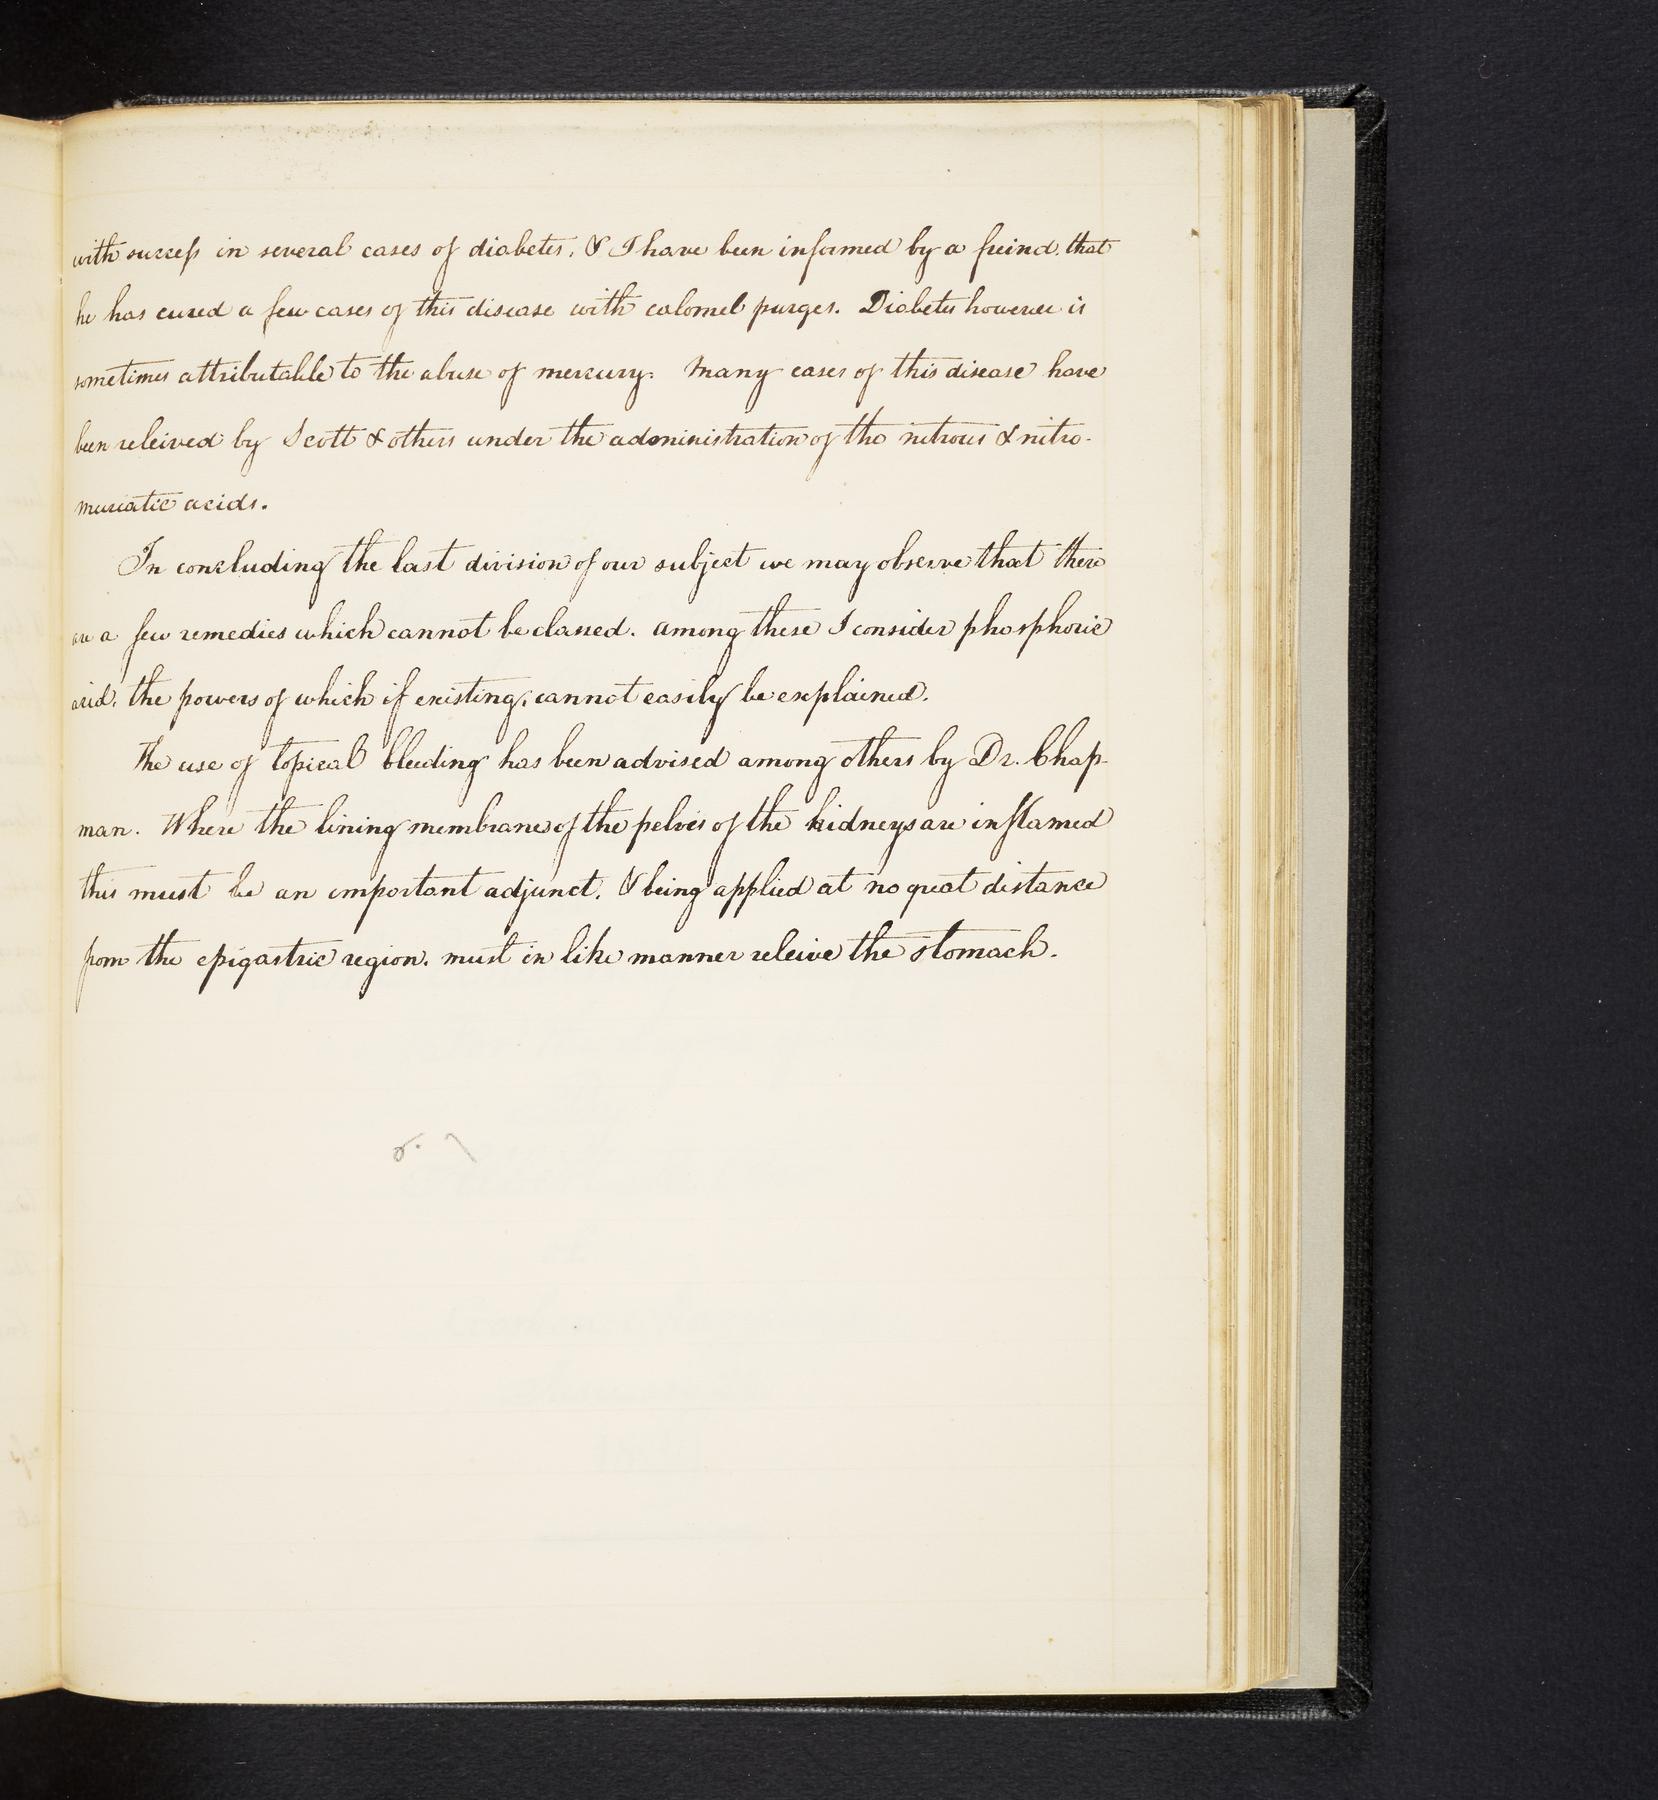 with success in several cases of diabetes, & I have been informed by a freind, that
he has cured a few cases of this disease with calomel purges. Diabetes however is
sometimes attributable to the abuse of mercury. Many cases of this disease have
been releived by Scott & others under the administration of the nitrous & nitro-
muriatic acids.
In concluding the last division of our subject we may observe that there
are a few remedies which cannot be classed. Among these I consider phosphoric
acid, the powers of which if existing, cannot easily be explained.
The use of topical bleeding has been advised among others by Dr. Chap-
man. Where the lining membranes of the pelves of the kidneys are inflamed
this must be an important adjunct, & being applied at no great distance
from the epigastric region, must in like manner releive the stomach.